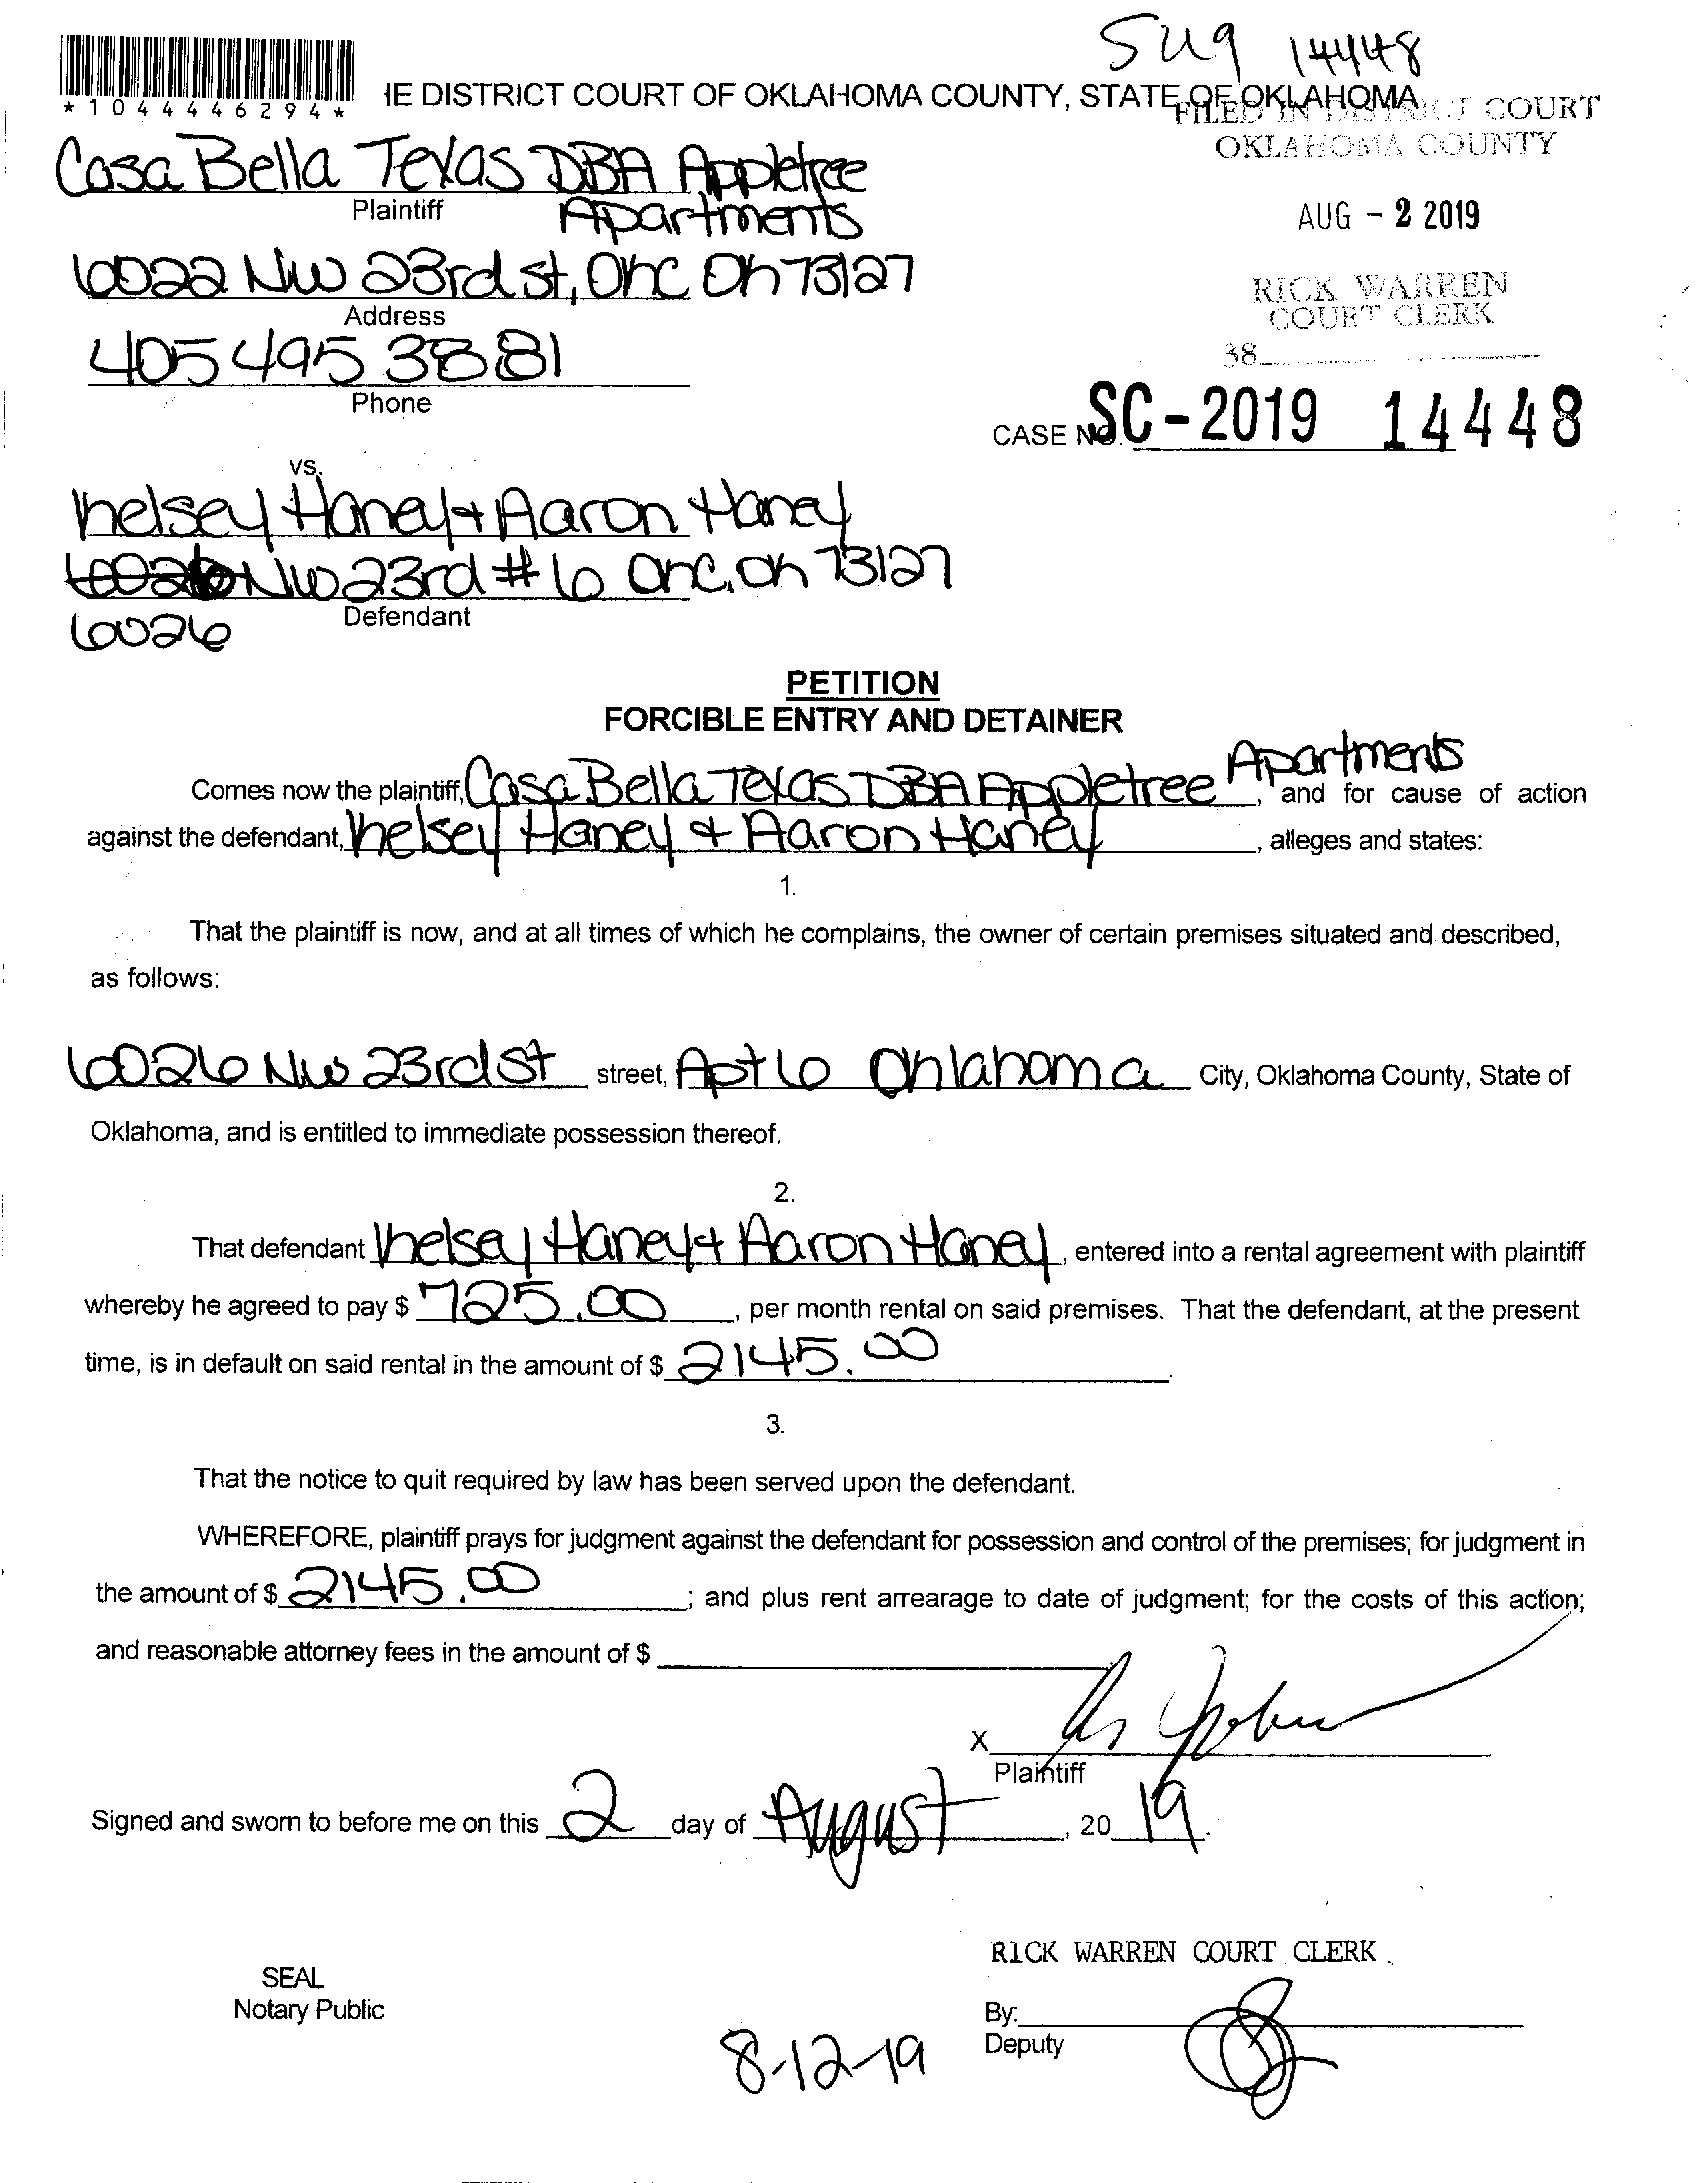 Sug 14448
*1044446294*
IE DISTRICT COURT OF OKLAHOMA COUNTY, STATE OF OKLAHOMA
FILED IN DISTRICT COURT
OKLAHOMA COUNTY
Casa Bella Texas DBA Appletree
Plaintiff
Apartments
AUG - 2 2019
6022 NW 23rd st, Okc Ok 73127
Address
RICK WARREN
COURT CLERK
405 495 3881
38
Phone
CASE NO. SC-2019 14448
vs.
Kelsey Haney + Aaron Haney
6026 NW 23rd # 6 Okc, Ok 73127
Defendant
6026
PETITION
FORCIBLE ENTRY AND DETAINER
Comes now the plaintiff, Casa Bella Texas DBA Appletree Apartments, and for cause of action
against the defendant, Kelsey Haney + Aaron Haney, alleges and states:
1.
That the plaintiff is now, and at all times of which he complains, the owner of certain premises situated and described,
as follows:
6026 NW 23rd St street, Apt 6 Oklahoma City, Oklahoma County, State of
Oklahoma, and is entitled to immediate possession thereof.
2.
That defendant Kelsey Haney + Aaron Haney, entered into a rental agreement with plaintiff
whereby he agreed to pay $ 725.00, per month rental on said premises. That the defendant, at the present
time, is in default on said rental in the amount of $ 2145.00.
3.
That the notice to quit required by law has been served upon the defendant.
WHEREFORE, plaintiff prays for judgment against the defendant for possession and control of the premises; for judgment in
the amount of $ 2145.00; and plus rent arrearage to date of judgment; for the costs of this action;
and reasonable attorney fees in the amount of $
X
Plaintiff
Signed and sworn to before me on this 2 day of August, 20 19.
RICK WARREN COURT CLERK
SEAL
Notary Public
By:
Deputy
8-12-19